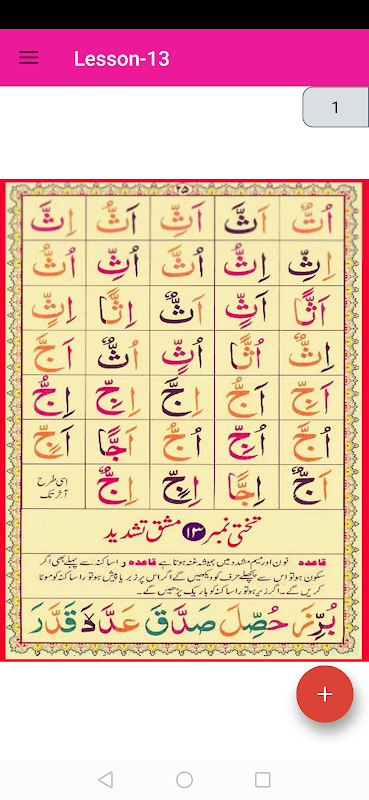 Lesson-13
1
۲۵
اُتٌّ اَثَّ اَثِّ اَثُّ اِثَّ
اِثِّ اِثُّ اُثَّ اُثِّ اُثُّ
اَثًّا اَثٍّ اَثٌّ اِثًّا اِثٍّ
اِثٌّ اُثًّا اُثٍّ اُثٌّ اَجَّ
اَجِّ اَجُّ اِجَّ اِجِّ اِجُّ
اُجَّ اُجِّ اُجُّ اَجًّا اَجٍّ
اَجٌّ اِجًّا اِجٍّ اِجٌّ اسی طرح
آخر تک
تختی نمبر ۱۳ مشق تشدید
قاعدہ نون اور میم مشدد میں ہمیشہ غنہ ہوتا ہے قاعدہ ر ساکنہ سے پہلے بھی اگر
سکون ہو تو اس سے پچھلے حرف کو دیکھیں گے اگر اس پر زبر یا پیش ہو تو را ساکنہ کو موٹا
کریں گے۔ اگر زیر ہو تو را ساکنہ کو باریک پڑھیں گے۔
بُرِّزَ حُصِّلَ صَدَّقَ قَدَّرَ